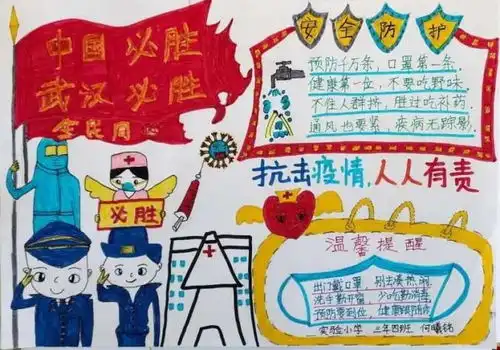 中国必胜
武汉必胜
全民同心
必胜
安全防护
预防千万条，口罩第一条，
健康第一位，不要吃野味
不住人群挤，胜过吃补药，
通风也要紧，疾病无踪影，
抗击疫情，人人有责
温馨提醒
出门戴口罩，别去凑热闹，
洗手勤开窗，少吃勤消毒，
预防要到位，健康跟防病
实验小学 三年四班 何曦铭